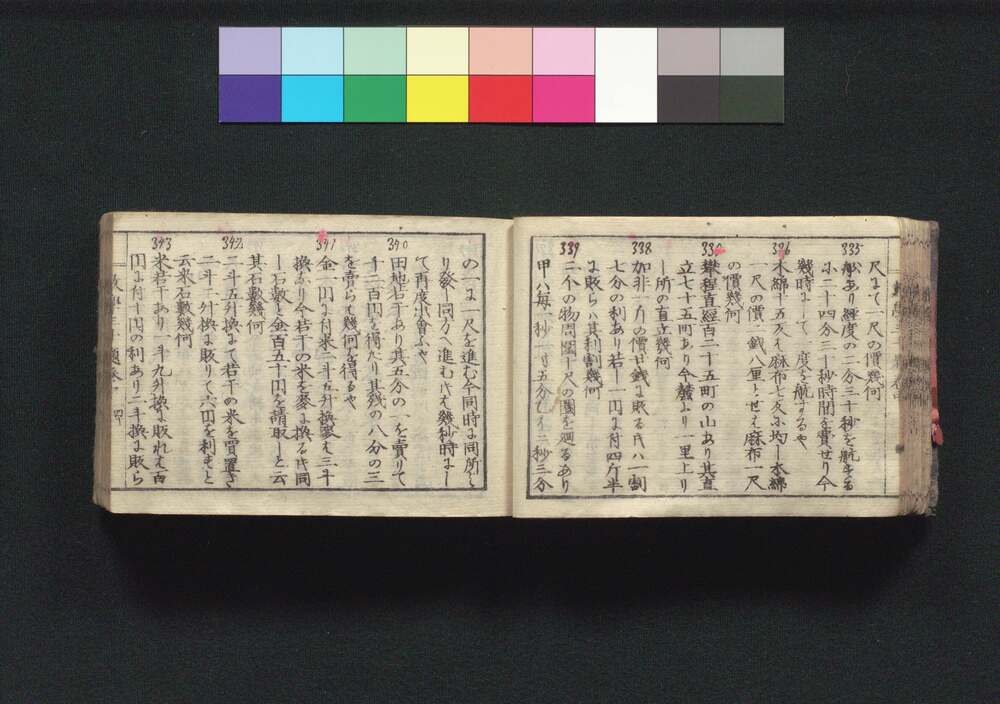 尺にて一尺の價幾何
335
船あり經度の二分三十秒を航する
に二十四分三十秒時間を費せり今
幾時にして一度を航するや
336
木綿十五反は麻布七反に均し木綿
一尺の價二錢八厘とせば麻布一尺
の價幾何
直經百二十五町の山あり其直
立七十五町あり今麓より一里上り
し所の直立幾何
338
加非一斤の價廿錢に販る時ハ一割
七分の利あり若し一円に付四斤半
に販らハ其利割幾何
339
二个の物周圍一尺の圜を廻るあり
甲ハ每一秒一寸五分乙は二秒三分
の一に一尺を進む今同時に同所よ
り發し同方へ進む時は幾秒時にし
て再度出會ふや
340
田地若干あり其五分の一を賣りて
千二百円を得たり其殘の八分の三
を賣らば幾何を得るや
341
金一円に付米二斗五升換麥は三斗
換なり今若干の米を麥に換る時同
し石數と金百五十円を請取しと云
其石數幾何
342
二斗五升換にて若干の米を買置き
二斗二升換に販りて六円を利すと
云米石數幾何
343
米若干あり一斗九升換に販れば百
円に付十円の利あり二斗換に販ら